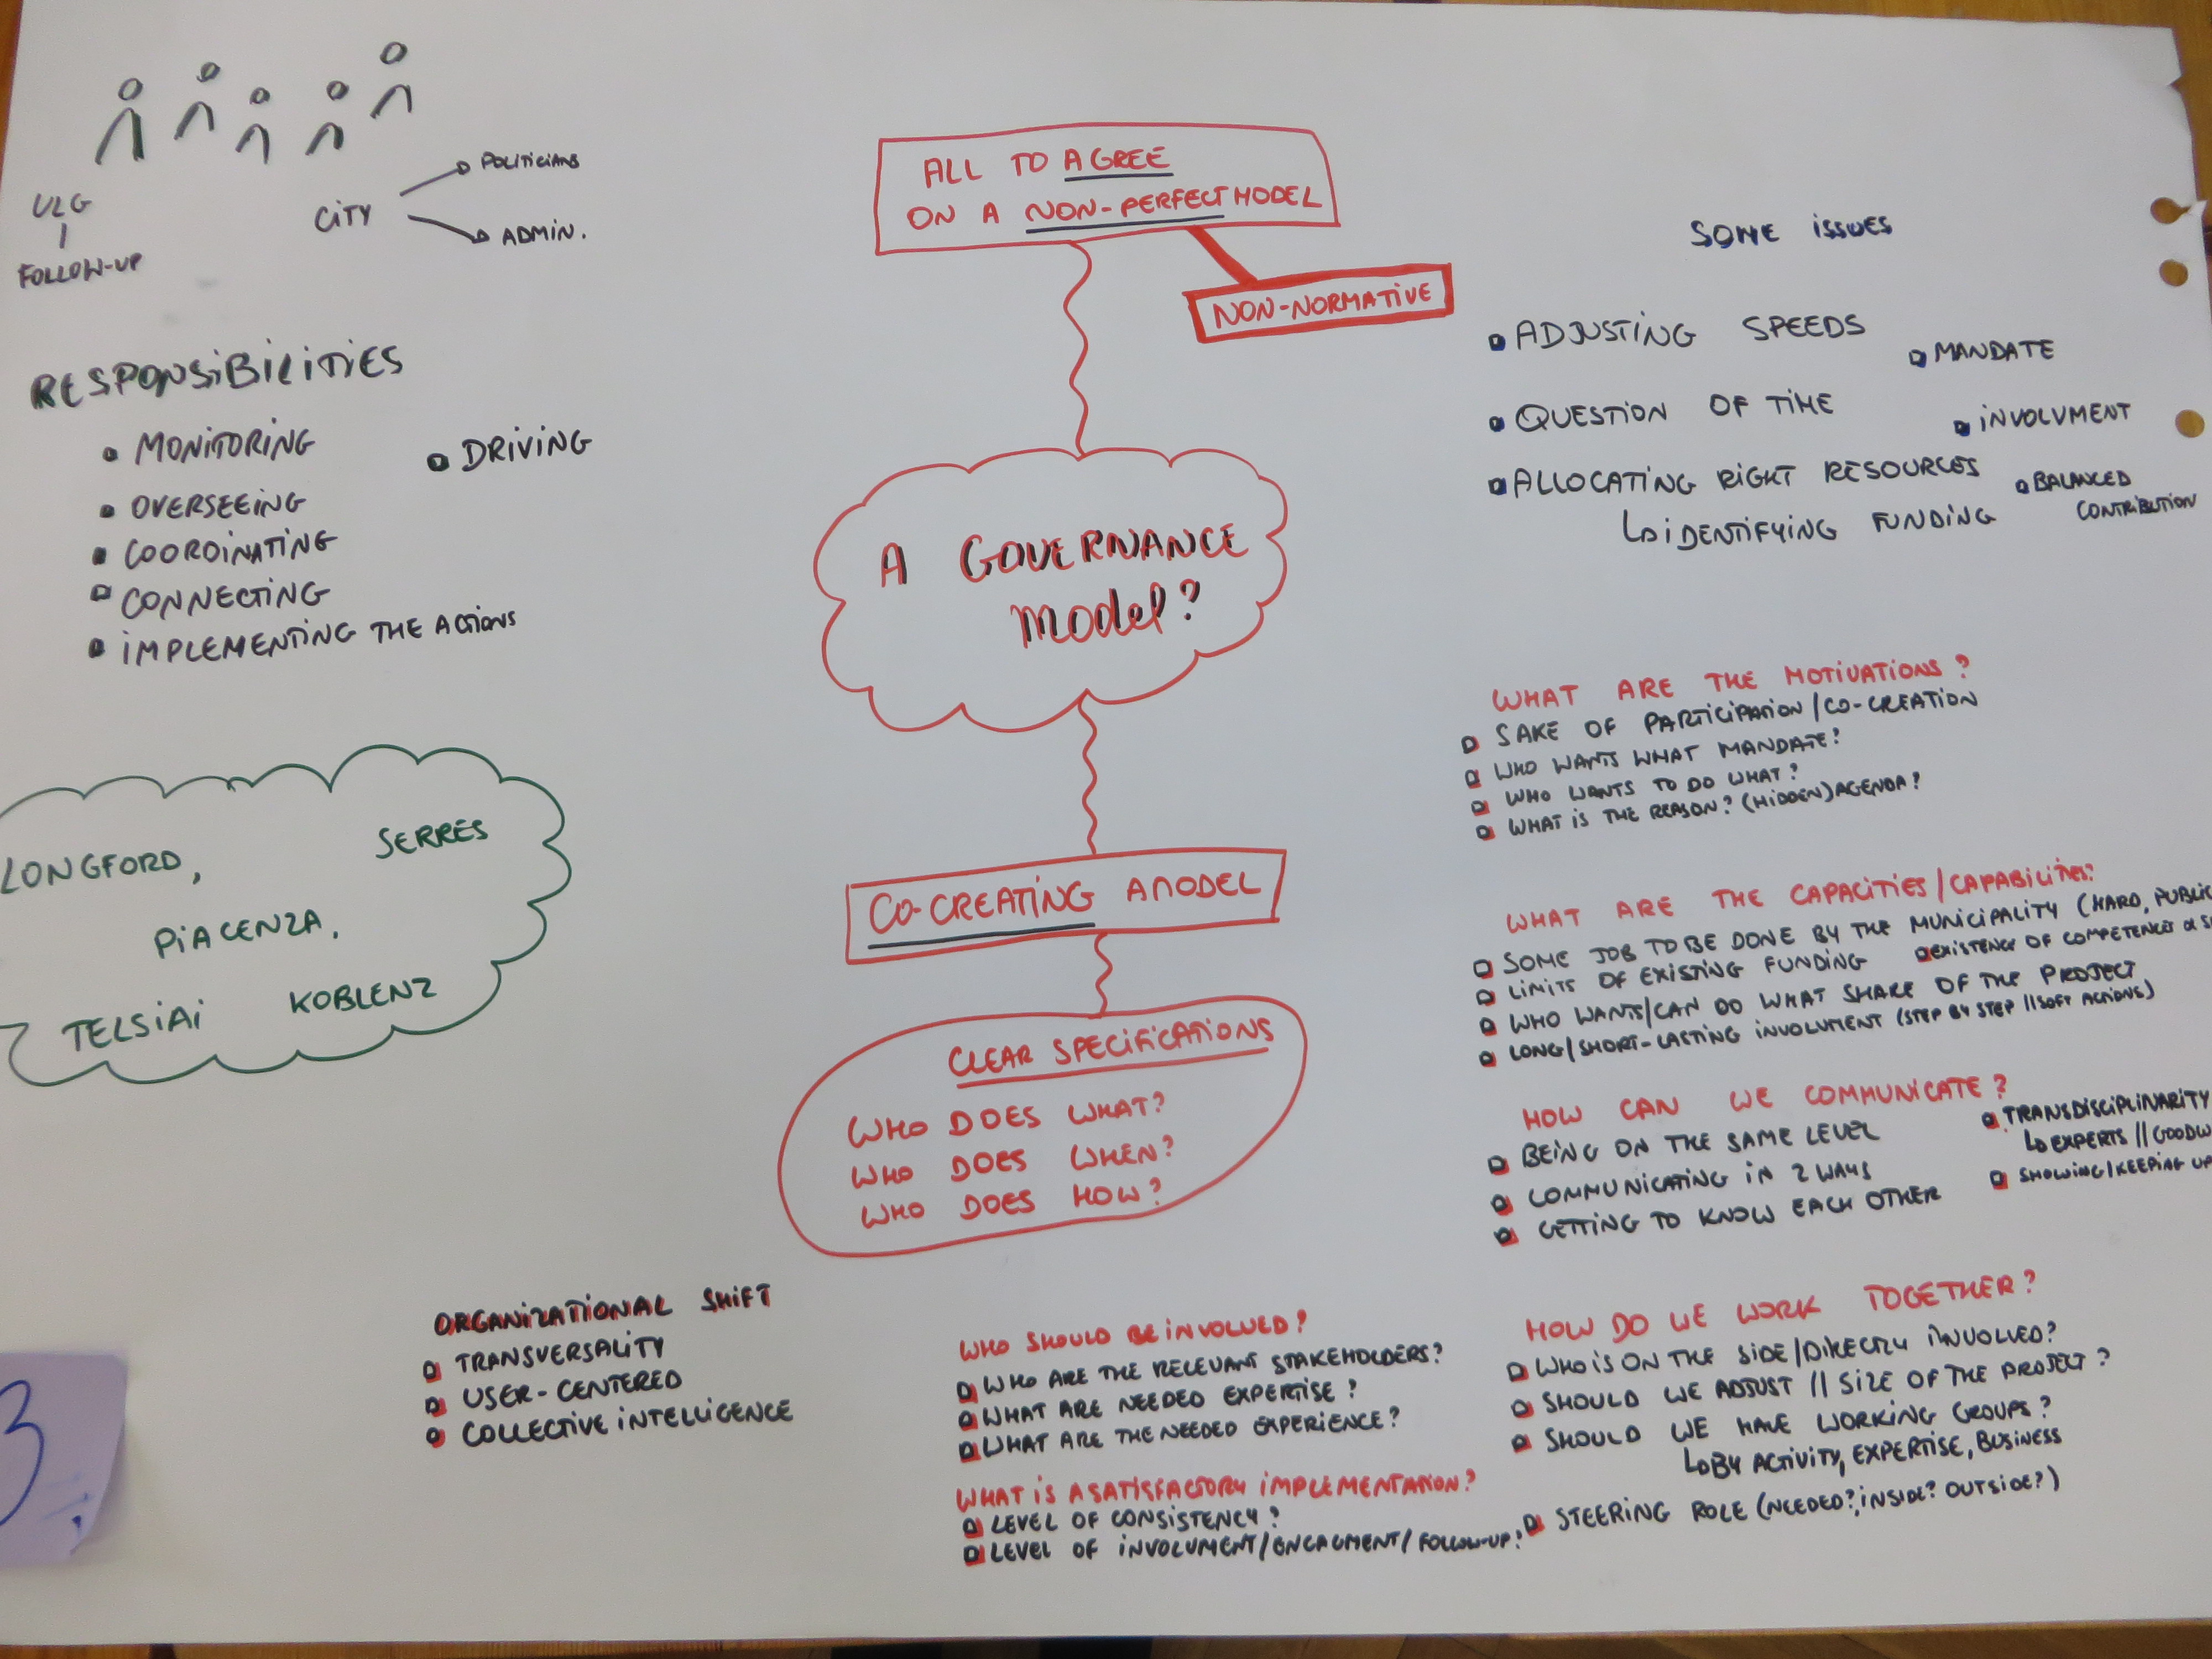 ULG
FOLLOW-UP
CITY
POLITICIANS
ADMIN.
RESPONSIBILITIES
MONITORING
DRIVING
OVERSEEING
COORDINATING
CONNECTING
IMPLEMENTING THE ACTIONS
LONGFORD,
SERRES
PIACENZA,
TELSIAI
KOBLENZ
3
ALL TO AGREE
ON A NON-PERFECT MODEL
NON-NORMATIVE
A GOVERNANCE
MODEL?
CO-CREATING A MODEL
CLEAR SPECIFICATIONS
WHO DOES WHAT?
WHO DOES WHEN?
WHO DOES HOW?
ORGANIZATIONAL SHIFT
TRANSVERSALITY
USER-CENTERED
COLLECTIVE INTELLIGENCE
WHO SHOULD BE INVOLVED?
WHO ARE THE RELEVANT STAKEHOLDERS?
WHAT ARE NEEDED EXPERTISE?
WHAT ARE THE NEEDED EXPERIENCE?
WHAT IS A SATISFACTORY IMPLEMENTATION?
LEVEL OF CONSISTENCY?
LEVEL OF INVOLVMENT/ENGAGMENT/FOLLOW-UP?
SOME ISSUES
ADJUSTING SPEEDS
MANDATE
QUESTION OF TIME
INVOLVMENT
ALLOCATING RIGHT RESOURCES
IDENTIFYING FUNDING
BALANCED
CONTRIBUTION
WHAT ARE THE MOTIVATIONS?
SAKE OF PARTICIPATION/CO-CREATION
WHO WANTS WHAT MANDATE?
WHO WANTS TO DO WHAT?
WHAT IS THE REASON? (HIDDEN) AGENDA?
WHAT ARE THE CAPACITIES/CAPABILITIES?
SOME JOB TO BE DONE BY THE MUNICIPALITY (HARD, PUBLIC
LIMITS OF EXISTING FUNDING
EXISTENCE OF COMPETENCES
WHO WANTS/CAN DO WHAT SHARE OF THE PROJECT
LONG/SHORT-LASTING INVOLVMENT (STEP BY STEP // SOFT ACTIONS)
HOW CAN WE COMMUNICATE?
BEING ON THE SAME LEVEL
COMMUNICATING IN 2 WAYS
GETTING TO KNOW EACH OTHER
TRANSDISCIPLINARITY
EXPERTS // GOODW
SHOWING/KEEPING UP
HOW DO WE WORK TOGETHER?
WHO IS ON THE SIDE/DIRECTLY INVOLVED?
SHOULD WE ADJUST // SIZE OF THE PROJECT?
SHOULD WE HAVE WORKING GROUPS?
BY ACTIVITY, EXPERTISE, BUSINESS
STEERING ROLE (NEEDED?, INSIDE? OUTSIDE?)